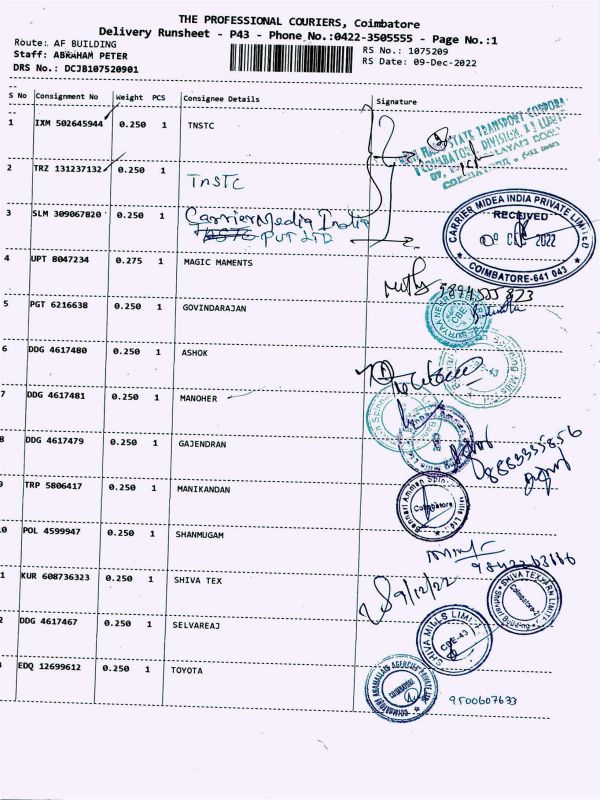 THE PROFESSIONAL COURIERS, Coimbatore
Delivery Runsheet - P43 - Phone No.:0422-3505555 - Page No.:1
Route: AF BUILDING
RS No.: 1075209
Staff: ABRAHAM PETER
RS Date: 09-Dec-2022
DRS No.: DCJB107520901
S No Consignment No Weight PCS Consignee Details Signature
1 IXM 502645944 0.250 1 TNSTC
STATE TRANSPORT CORPORA
COIMBATORE DIVISION
2 TRZ 131237132 0.250 1 TNSTC
3 SLM 309067820 0.250 1 Carrier Media India
PVT LTD
CARRIER MIDEA INDIA PRIVATE LIMITED
RECEIVED
2022
COIMBATORE-641 043
4 UPT 8047234 0.275 1 MAGIC MAMENTS
5 PGT 6216638 0.250 1 GOVINDARAJAN
6 DDG 4617480 0.250 1 ASHOK
7 DDG 4617481 0.250 1 MANOHER
8 DDG 4617479 0.250 1 GAJENDRAN
9 TRP 5806417 0.250 1 MANIKANDAN
Bannari Amman Spin
Mills Ltd
Coimbatore
0 POL 4599947 0.250 1 SHANMUGAM
1 KUR 608736323 0.250 1 SHIVA TEX
9/12/22
SHIVA TEXYARN LIMITED
Coimbatore
2 DDG 4617467 0.250 1 SELVAREAJ
SHIVA MILLS LIMITED
CBE-43
EDQ 12699612 0.250 1 TOYOTA
COIMBATORE ANAMALLAIS AGENCIES PRIVATE
COIMBATORE
9500607633